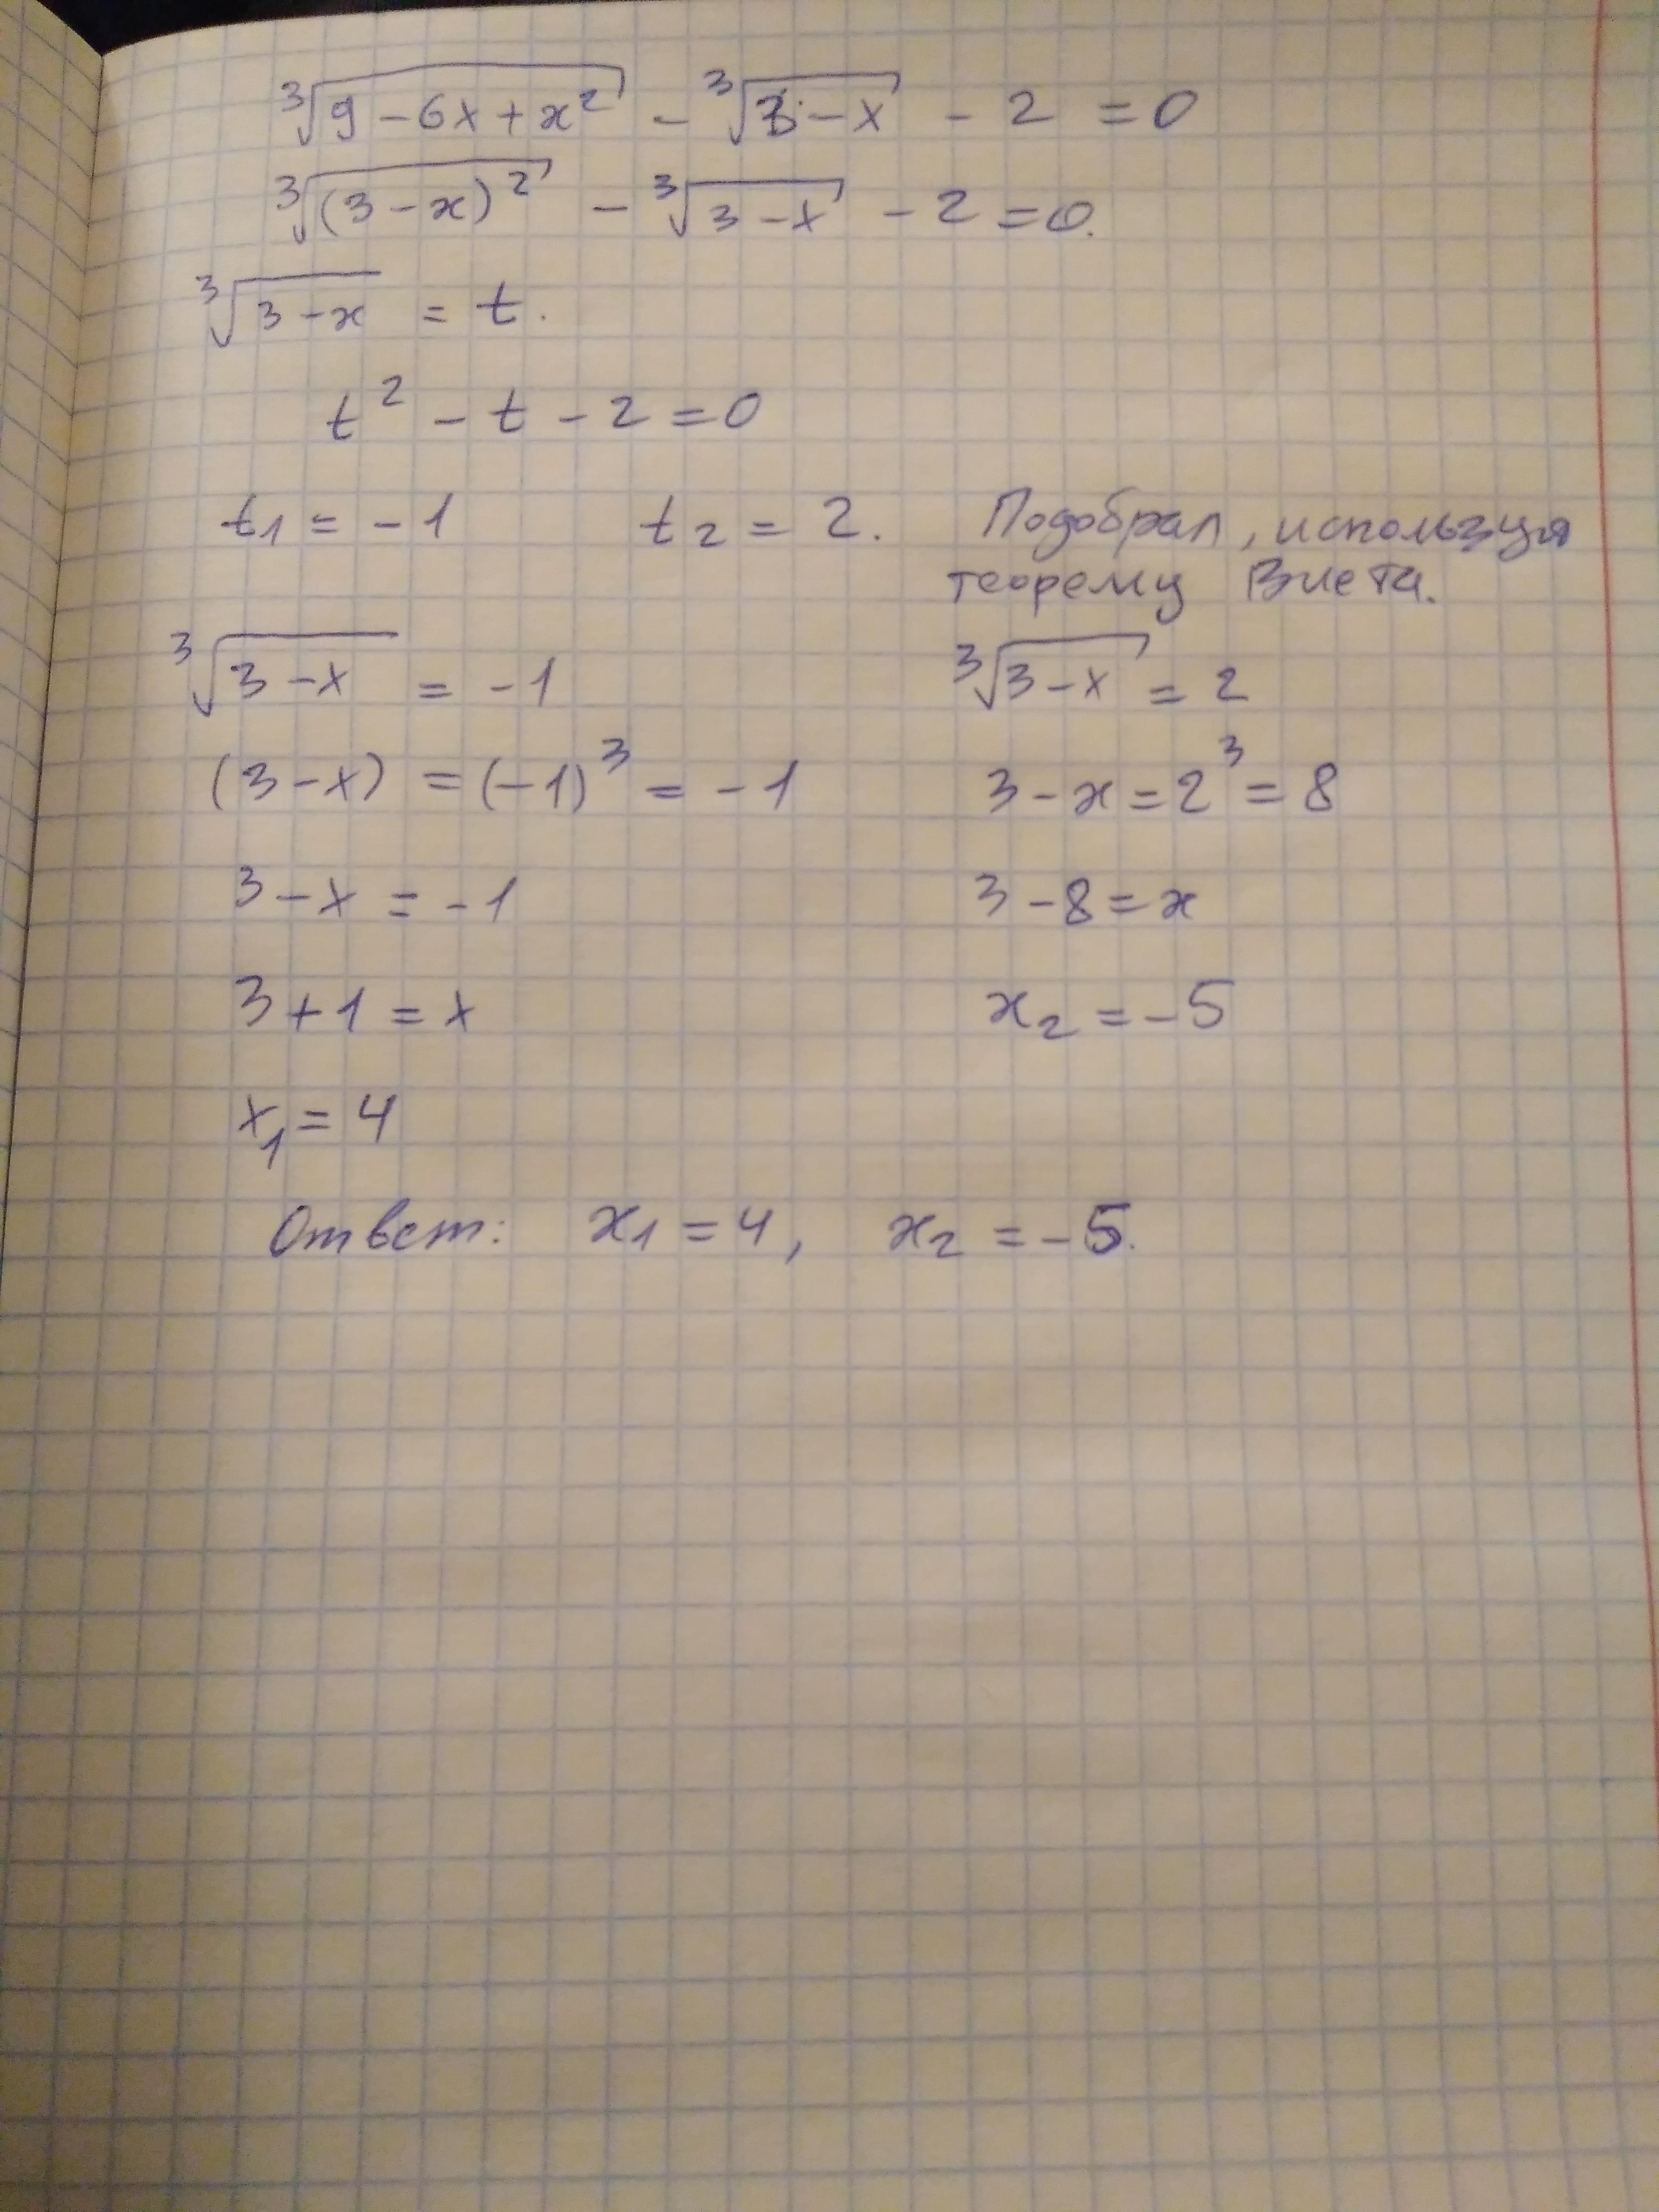 ∛(9 − 6x + x²) − ∛(3 − x) − 2 = 0
∛((3 − x)²) − ∛(3 − x) − 2 = 0.
∛(3 − x) = t.
t² − t − 2 = 0
t₁ = −1 t₂ = 2. Подобрал, используя
теорему Виета.
∛(3 − x) = −1 ∛(3 − x) = 2
(3 − x) = (−1)³ = −1 3 − x = 2³ = 8
3 − x = −1 3 − 8 = x
3 + 1 = x x₂ = −5
x₁ = 4
Ответ: x₁ = 4, x₂ = −5.